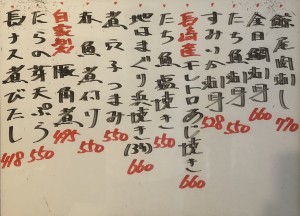 鯨尾肉刺し 770
金目鯛刺身 660
たち魚刺身 550
すみいか刺身 528
長崎産トレトロあじ焼き 660
たち魚塩焼き 550
地はまぐり浜焼き 660
煮穴子つまみ 550
赤魚煮付け 550
自家製豚角煮 495
たらの芽天ぷら 550
長ナス煮びたし 418